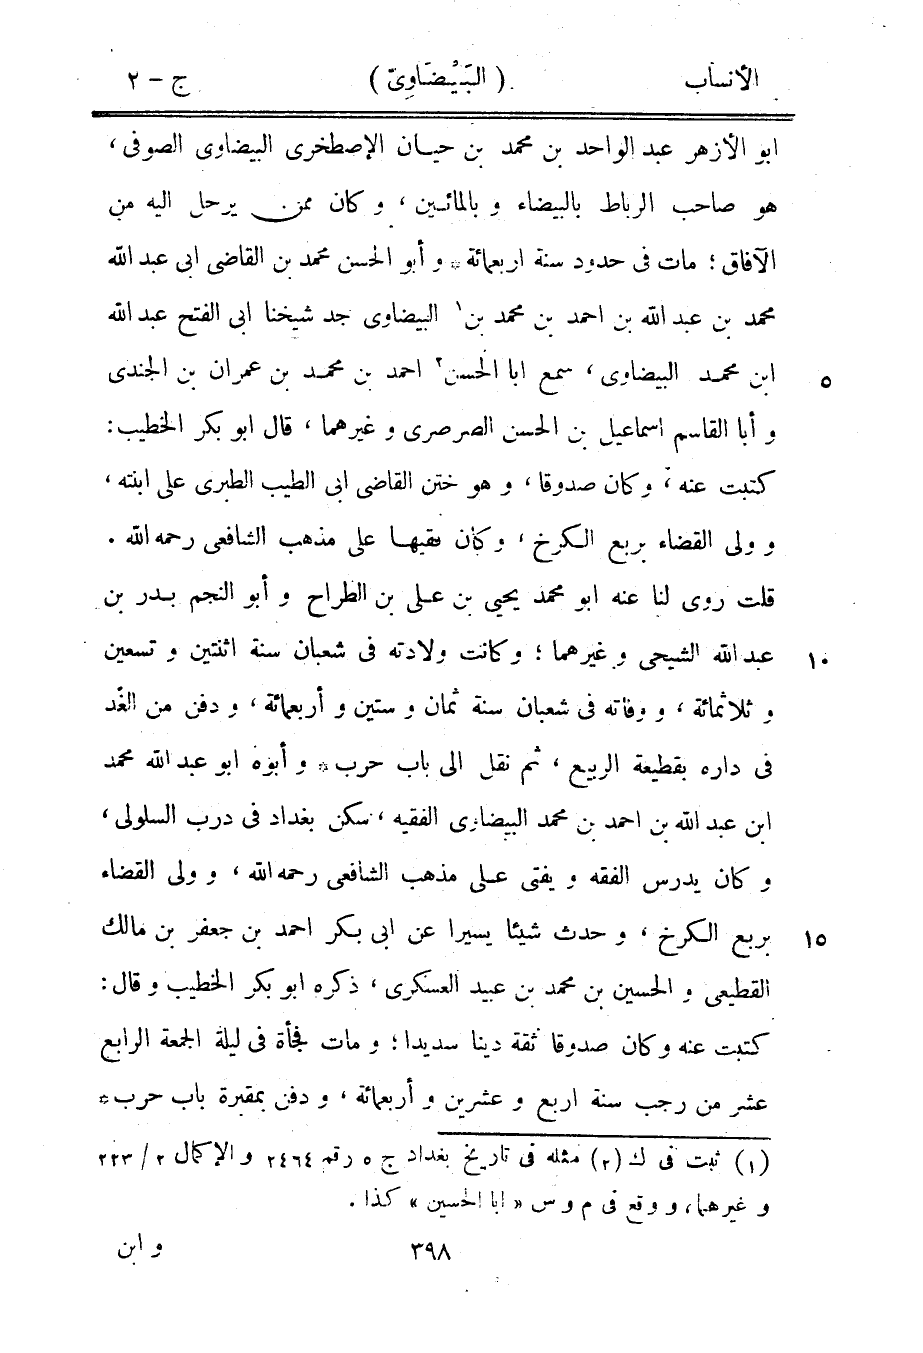 الأنساب ( البَيْضَاوِىّ ) ج - ٢
ابو الأزهر عبد الواحد بن محمد بن حيان الإصطخرى البيضاوى الصوفى ،
هو صاحب الرباط بالبيضاء و بالمائين ، و كان ممن يرحل اليه من
الآفاق ؛ مات فى حدود سنة اربعمائة * و أبو الحسن محمد بن القاضى ابى عبد الله
محمد بن عبد الله بن احمد بن محمد بن ١ البيضاوى جد شيخنا ابى الفتح عبد الله
ابن محمد البيضاوى ، سمع ابا الحسن ٢ احمد بن محمد بن عمران بن الجندى ٥
و أبا القاسم اسماعيل بن الحسن الصرصرى و غيرهما ، قال ابو بكر الخطيب :
كتبت عنه ، و كان صدوقا ، و هو ختن القاضى ابى الطيب الطبرى على ابنته ،
و ولى القضاء بربع الكرخ ، و كان فقيها على مذهب الشافعى رحمه الله .
قلت روى لنا عنه ابو محمد يحيى بن على بن الطراح و أبو النجم بدر بن
عبد الله الشيحى و غيرهما ؛ و كانت ولادته فى شعبان سنة اثنتين و تسعين ١٠
و ثلاثمائة ، و وفاته فى شعبان سنة ثمان و ستين و أربعمائة ، و دفن من الغد
فى داره بقطيعة الربيع ، ثم نقل الى باب حرب * و أبوه ابو عبد الله محمد
ابن عبد الله بن احمد بن محمد البيضاوى الفقيه ، سكن بغداد فى درب السلولى ،
و كان يدرس الفقه و يفتى على مذهب الشافعى رحمه الله ، و ولى القضاء
بربع الكرخ ، و حدث شيئا يسيرا عن ابى بكر احمد بن جعفر بن مالك ١٥
القطيعى و الحسين بن محمد بن عبيد العسكرى ، ذكره ابو بكر الخطيب و قال :
كتبت عنه و كان صدوقا ثقة دينا سديدا ؛ و مات فجأة فى ليلة الجمعة الرابع
عشر من رجب سنة اربع و عشرين و أربعمائة ، و دفن بمقبرة باب حرب *
(١) ثبت فى ك (٢) مثله فى تاريخ بغداد ج ٥ رقم ٢٤٦٤ و الإكمال ٢ / ٢٢٣
و غيرهما، و وقع فى م و س « ابا الحسين » كذا .
٣٩٨ و ابن